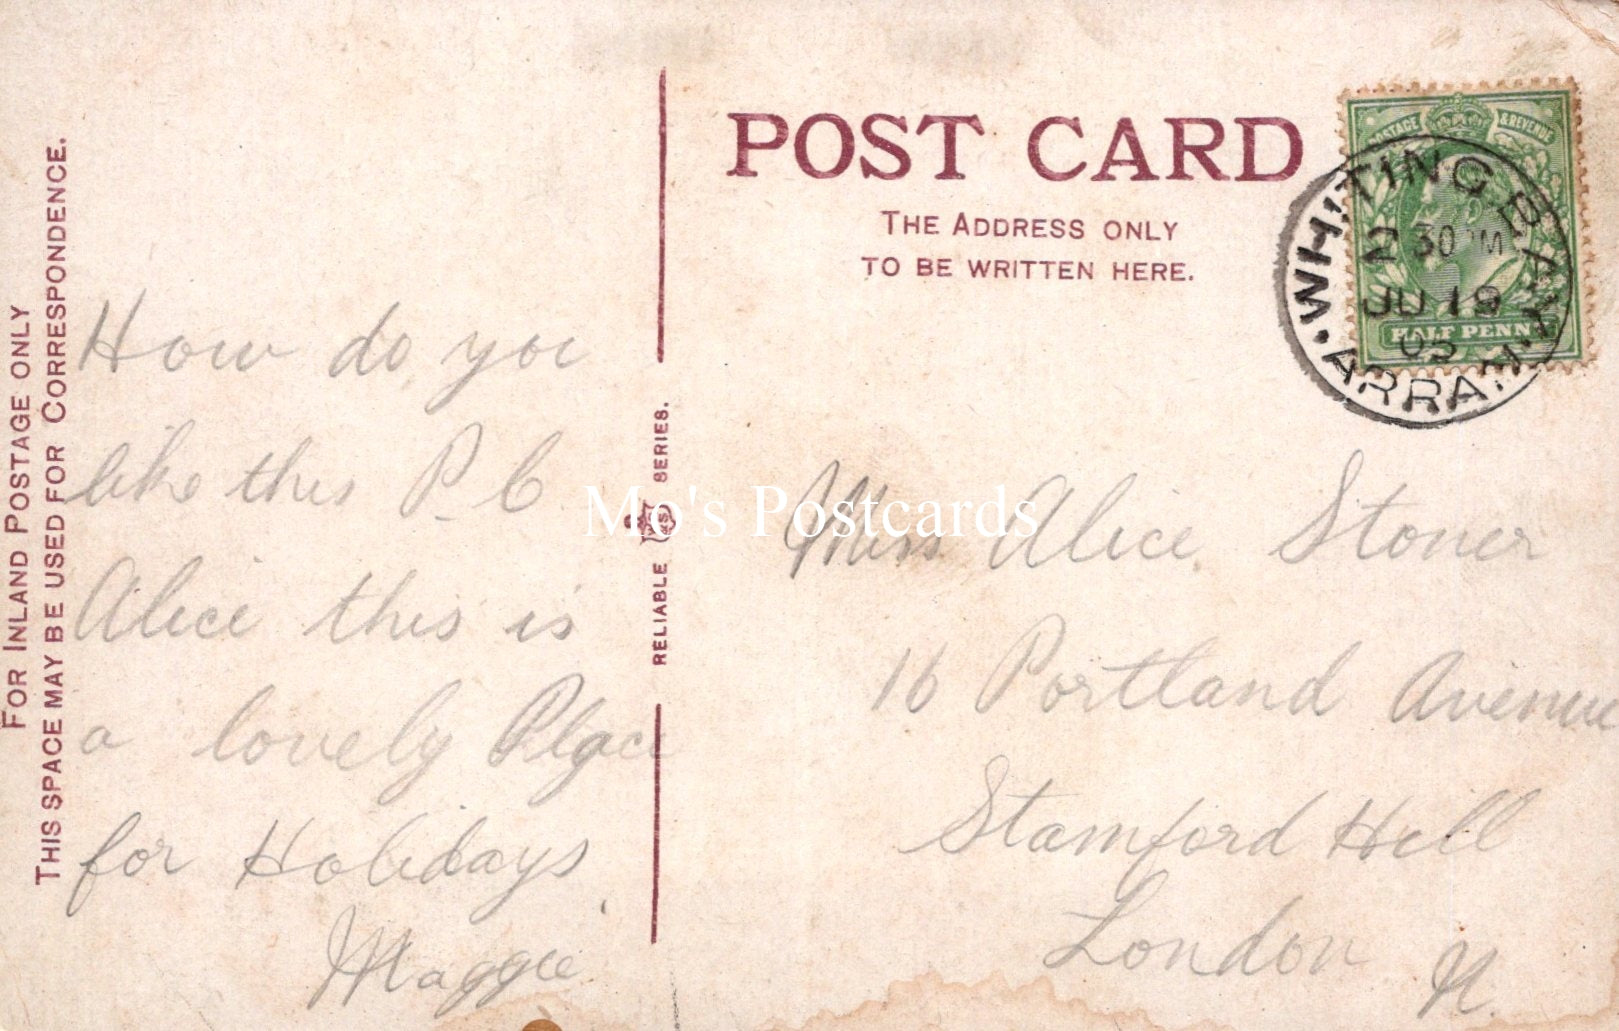 FOR INLAND POSTAGE ONLY
THIS SPACE MAY BE USED FOR CORRESPONDENCE.
How do you
like this P. C.
Alice this is
a lovely Place
for Holidays
Maggie
RELIABLE WR&S SERIES.
POST CARD
THE ADDRESS ONLY
TO BE WRITTEN HERE.
POSTAGE & REVENUE
HALF PENNY
WHITING BAY
2 30 PM
JU 19
05
ARRAN
Miss Alice Stoner
16 Portland Avenue
Stamford Hill
London
N.
Mo's Postcards